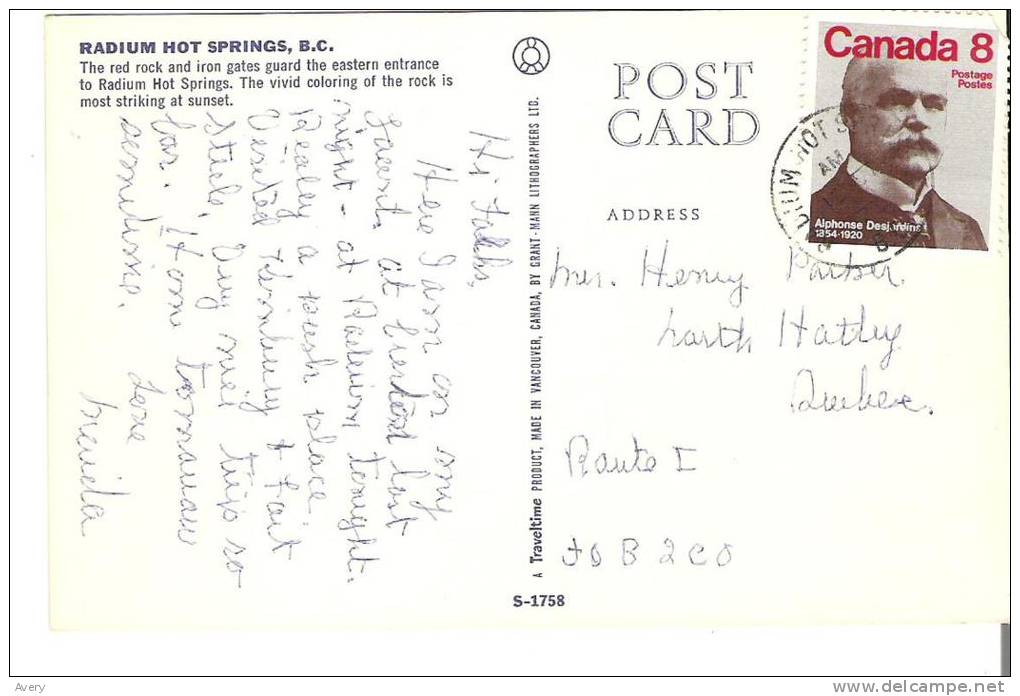 RADIUM HOT SPRINGS, B.C.
The red rock and iron gates guard the eastern entrance
to Radium Hot Springs. The vivid coloring of the rock is
most striking at sunset.
Hi Folks,
Here I am on my
at last
night - at Radium tonight.
Realey a posh place
Visited & Fort
Steele. Very nice trip so
far. Home tomorrow
sometime.
Love
A Traveltime PRODUCT, MADE IN VANCOUVER, CANADA, BY GRANT-MANN LITHOGRAPHERS LTD.
S-1758
POST
CARD
ADDRESS
Canada 8
Postage
Postes
Alphonse Desjardins
1854-1920
AM
Mrs. Henry Parker.
North Hatley
Quebec.
Route I
J0B 2C0
Avery
delcampe.net